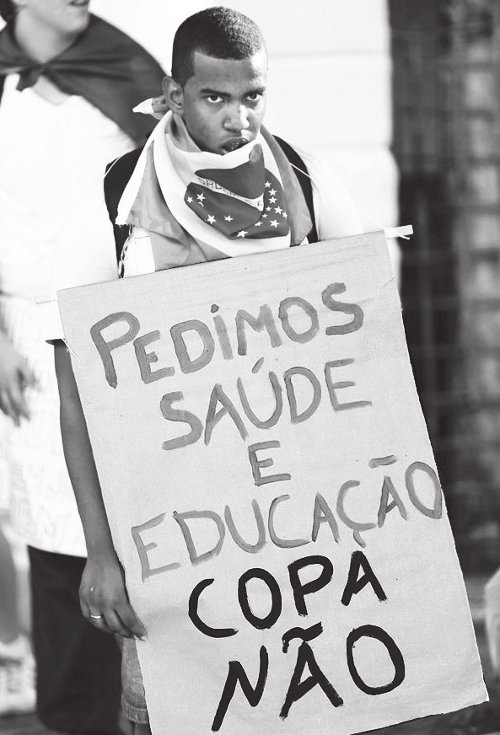 PEDIMOS
SAÚDE
E
EDUCAÇÃO
COPA
NÃO